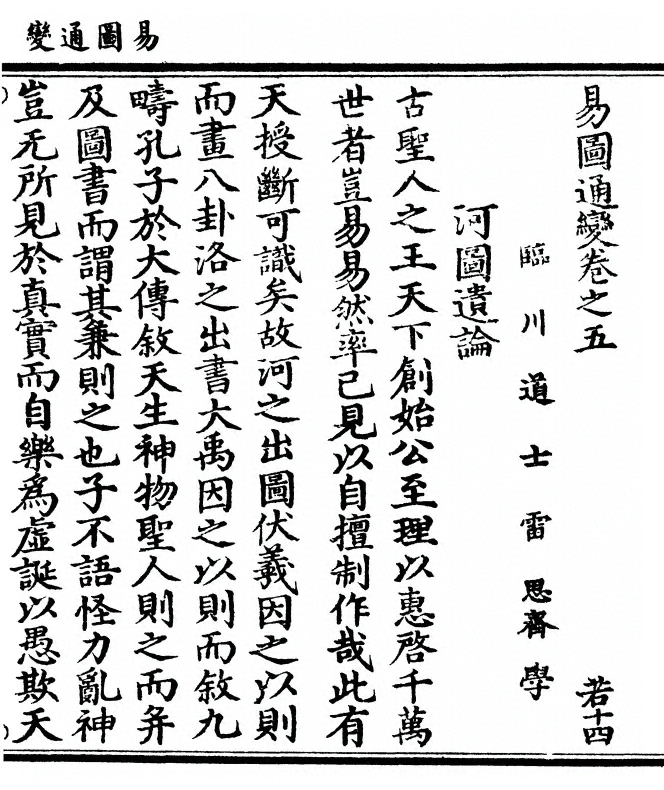 易圖通變
易圖通變卷之五　若十四
臨川道士雷思齊學
河圖遺論
古聖人之王天下創始公至理以惠啓千萬
世者豈易易然率己見以自擅制作哉此有
天授斷可識矣故河之出圖伏羲因之以則
而畫八卦洛之出書大禹因之以則而敘九
疇孔子於大傳敘天生神物聖人則之而并
及圖書而謂其兼則之也子不語怪力亂神
豈无所見於真實而自樂為虛誕以愚欺天